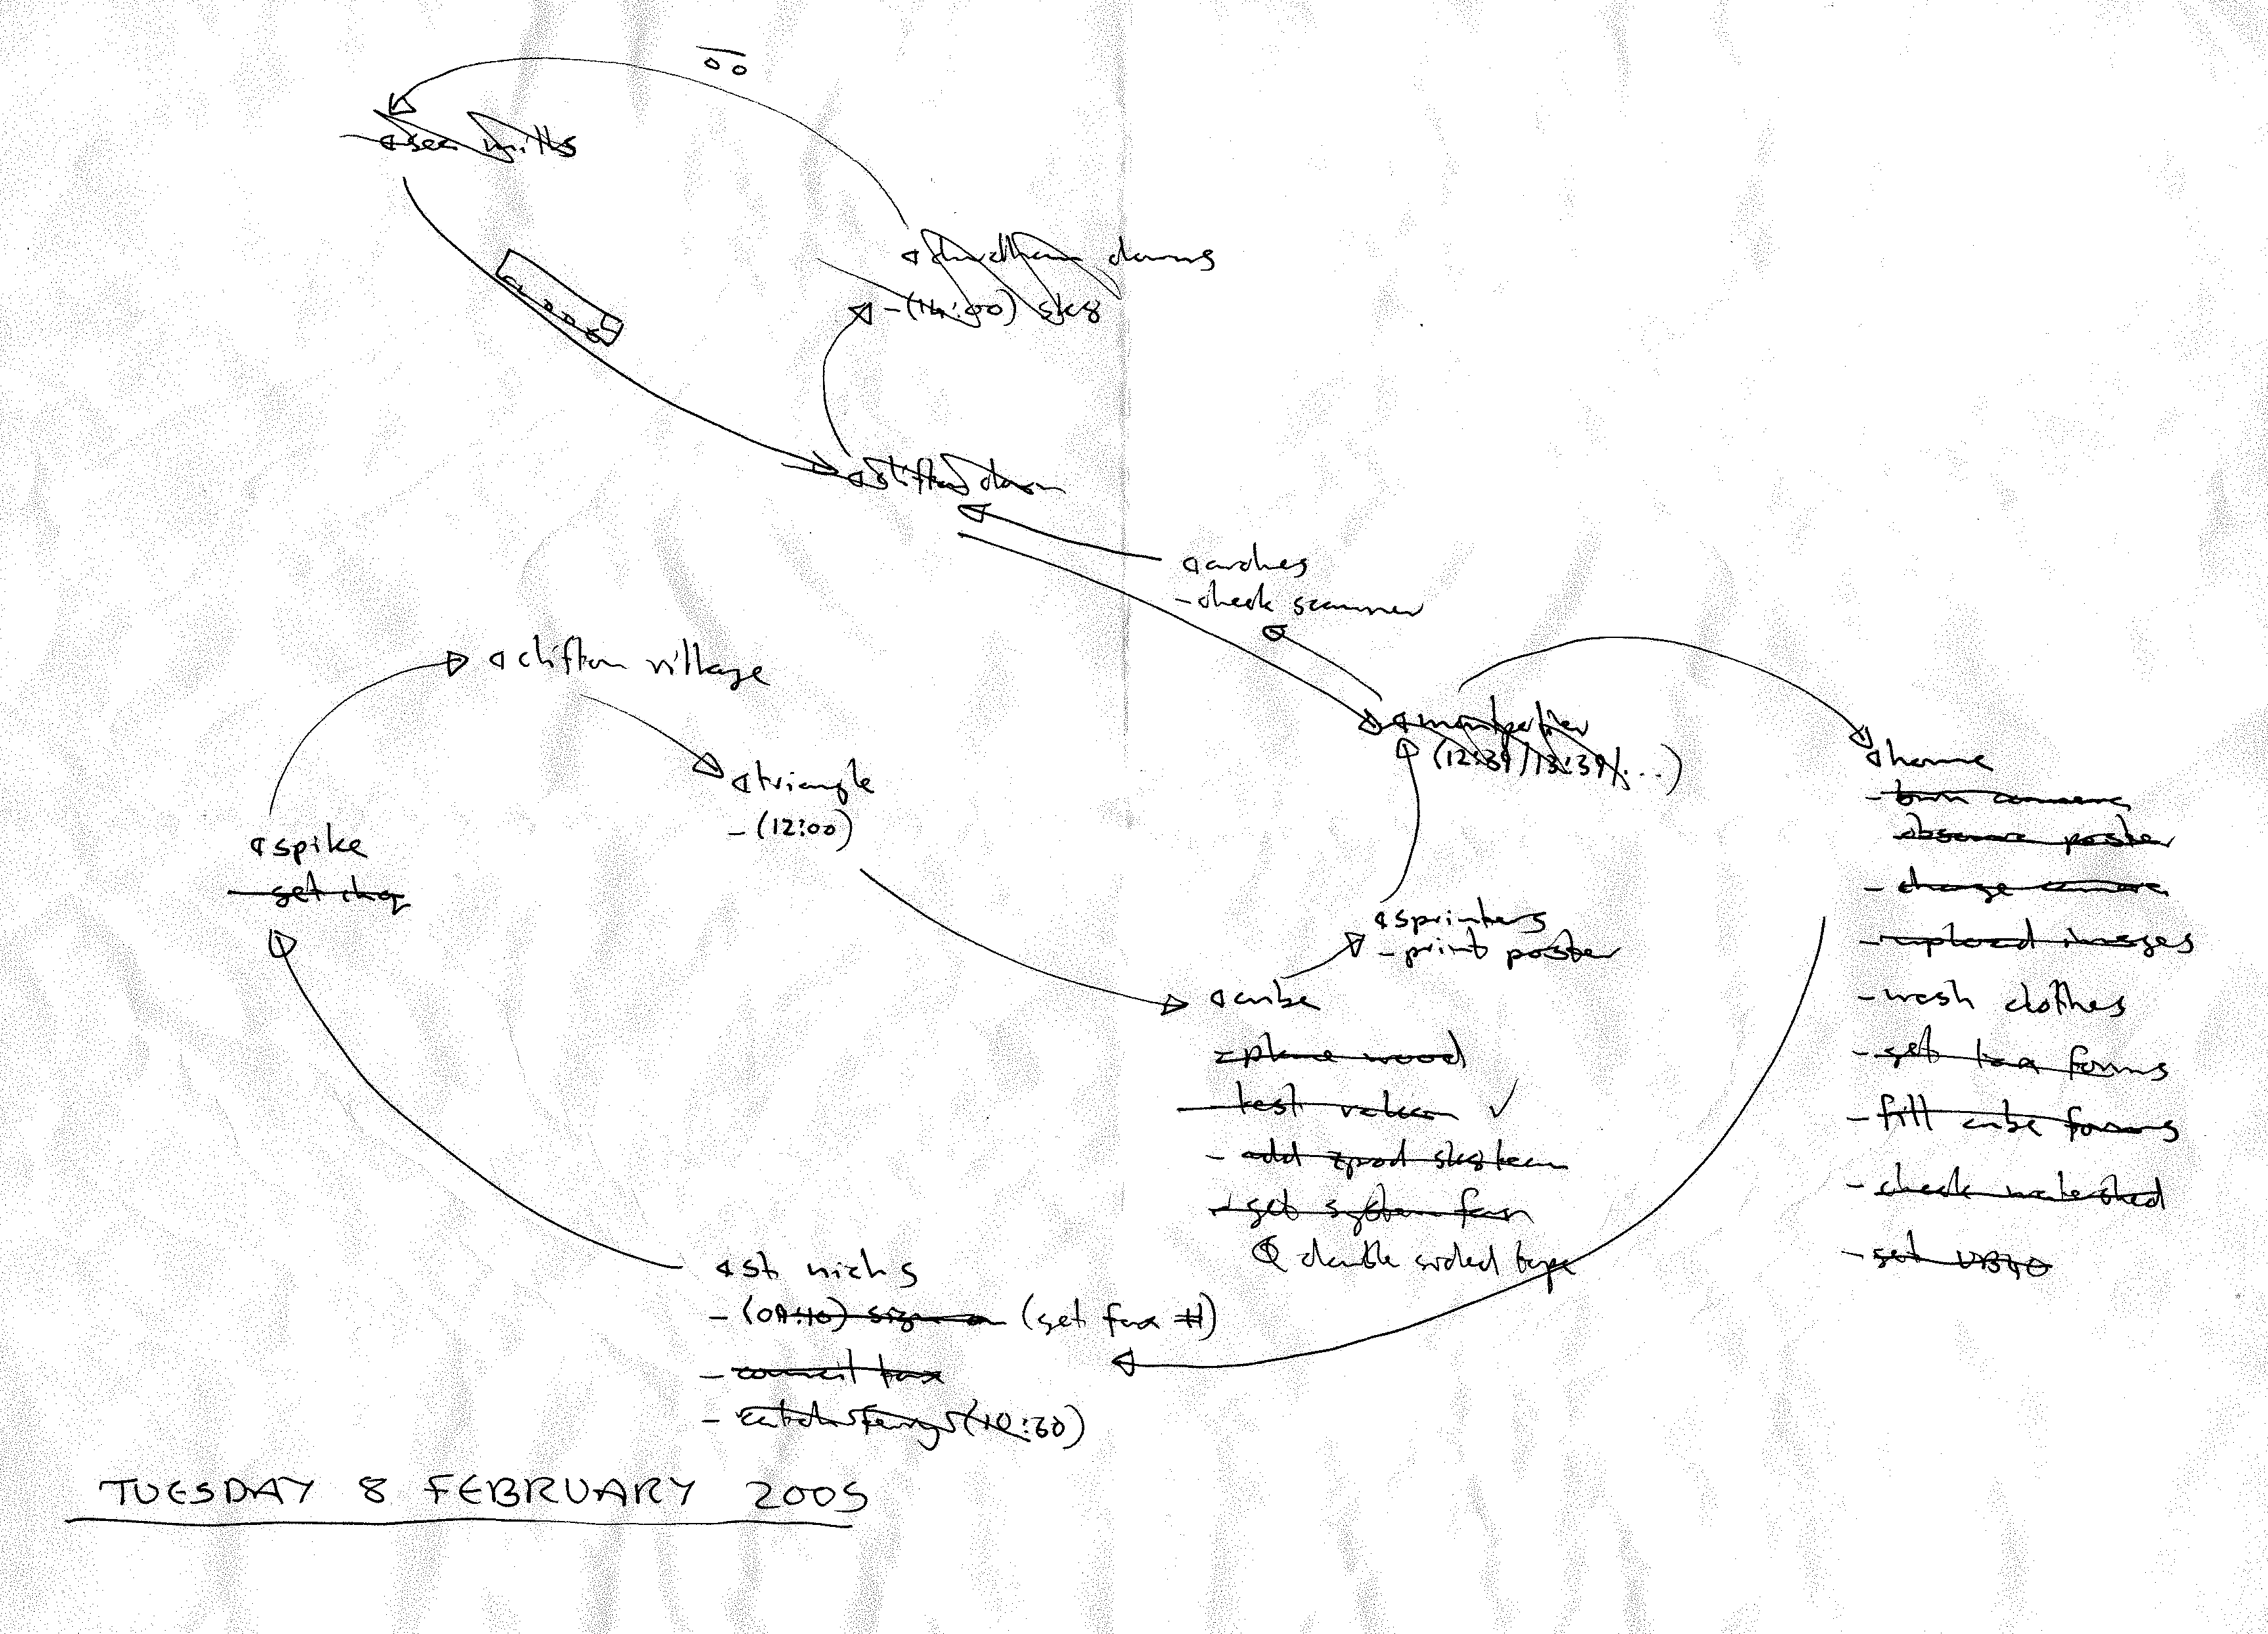 sea mills
durdham downs
-(14:00) sk8
clifton down
arches
- check scanner
clifton village
montpelier
(12:39/13:39/...)
home
- burn
obscure poster
- charge camera
- upload images
- wash clothes
- get tax forms
- fill cube forms
- check watershed
- get UB40
triangle
- (12:00)
spike
- get chq
sprinters
- print poster
cube
- plane wood
- test ✓
- add sk8 team
- get system fan
& double sided tape
st nichs
- (09:10) sign on (get fax #)
- council tax
- catch ferry (10:30)
TUESDAY 8 FEBRUARY 2005